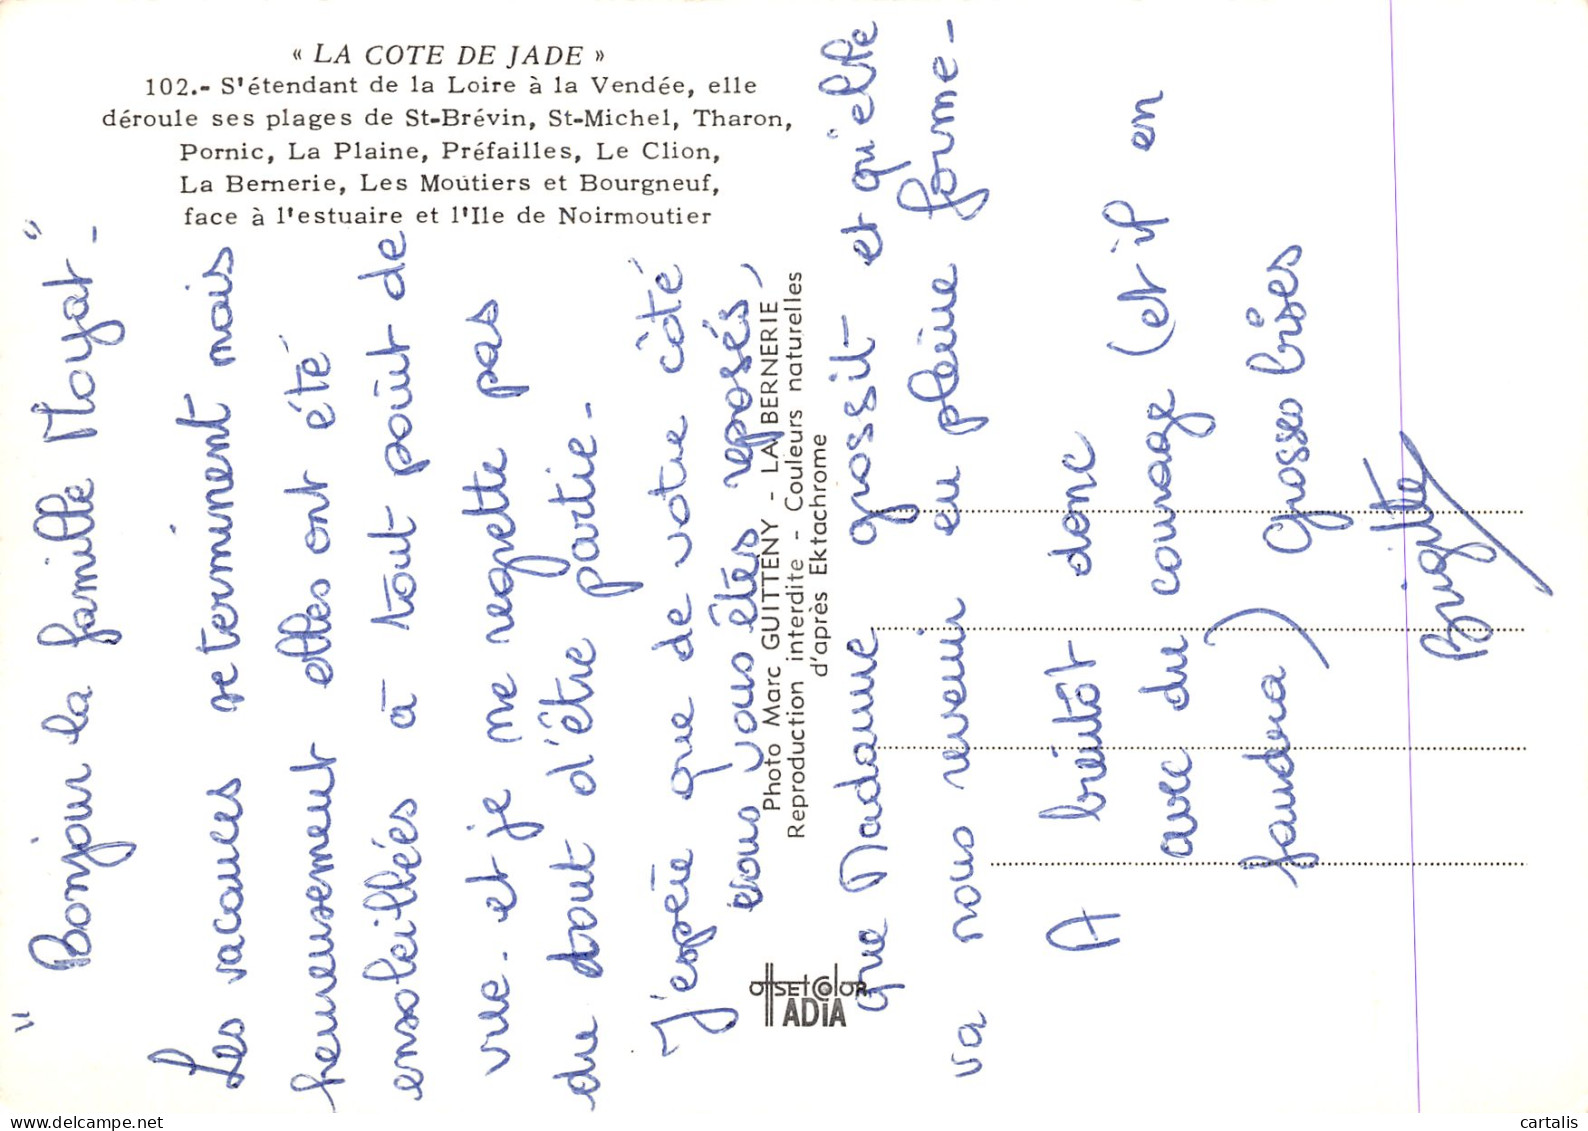 « LA COTE DE JADE »
102.- S'étendant de la Loire à la Vendée, elle
déroule ses plages de St-Brévin, St-Michel, Tharon,
Pornic, La Plaine, Préfailles, Le Clion,
La Bernerie, Les Moutiers et Bourgneuf,
face à l'estuaire et l'Ile de Noirmoutier
"Bonjour la famille Moyat"-
Les vacances se terminent mais
heureusement elles ont été
ensoleillées à tout point de
vue. et je ne regrette pas
du tout d'être partie-
J'espère que de votre côté
vous vous êtes reposés,
que Madame grossit et qu'elle
va nous revenir en pleine forme-
A bientôt donc
avec du courage (et il en
faudra)
Grosses bises
Brigitte
Photo Marc GUITTENY - LA BERNERIE
Reproduction interdite - Couleurs naturelles
d'après Ektachrome
OFFSET COLOR
ADIA
delcampe.net
cartalis